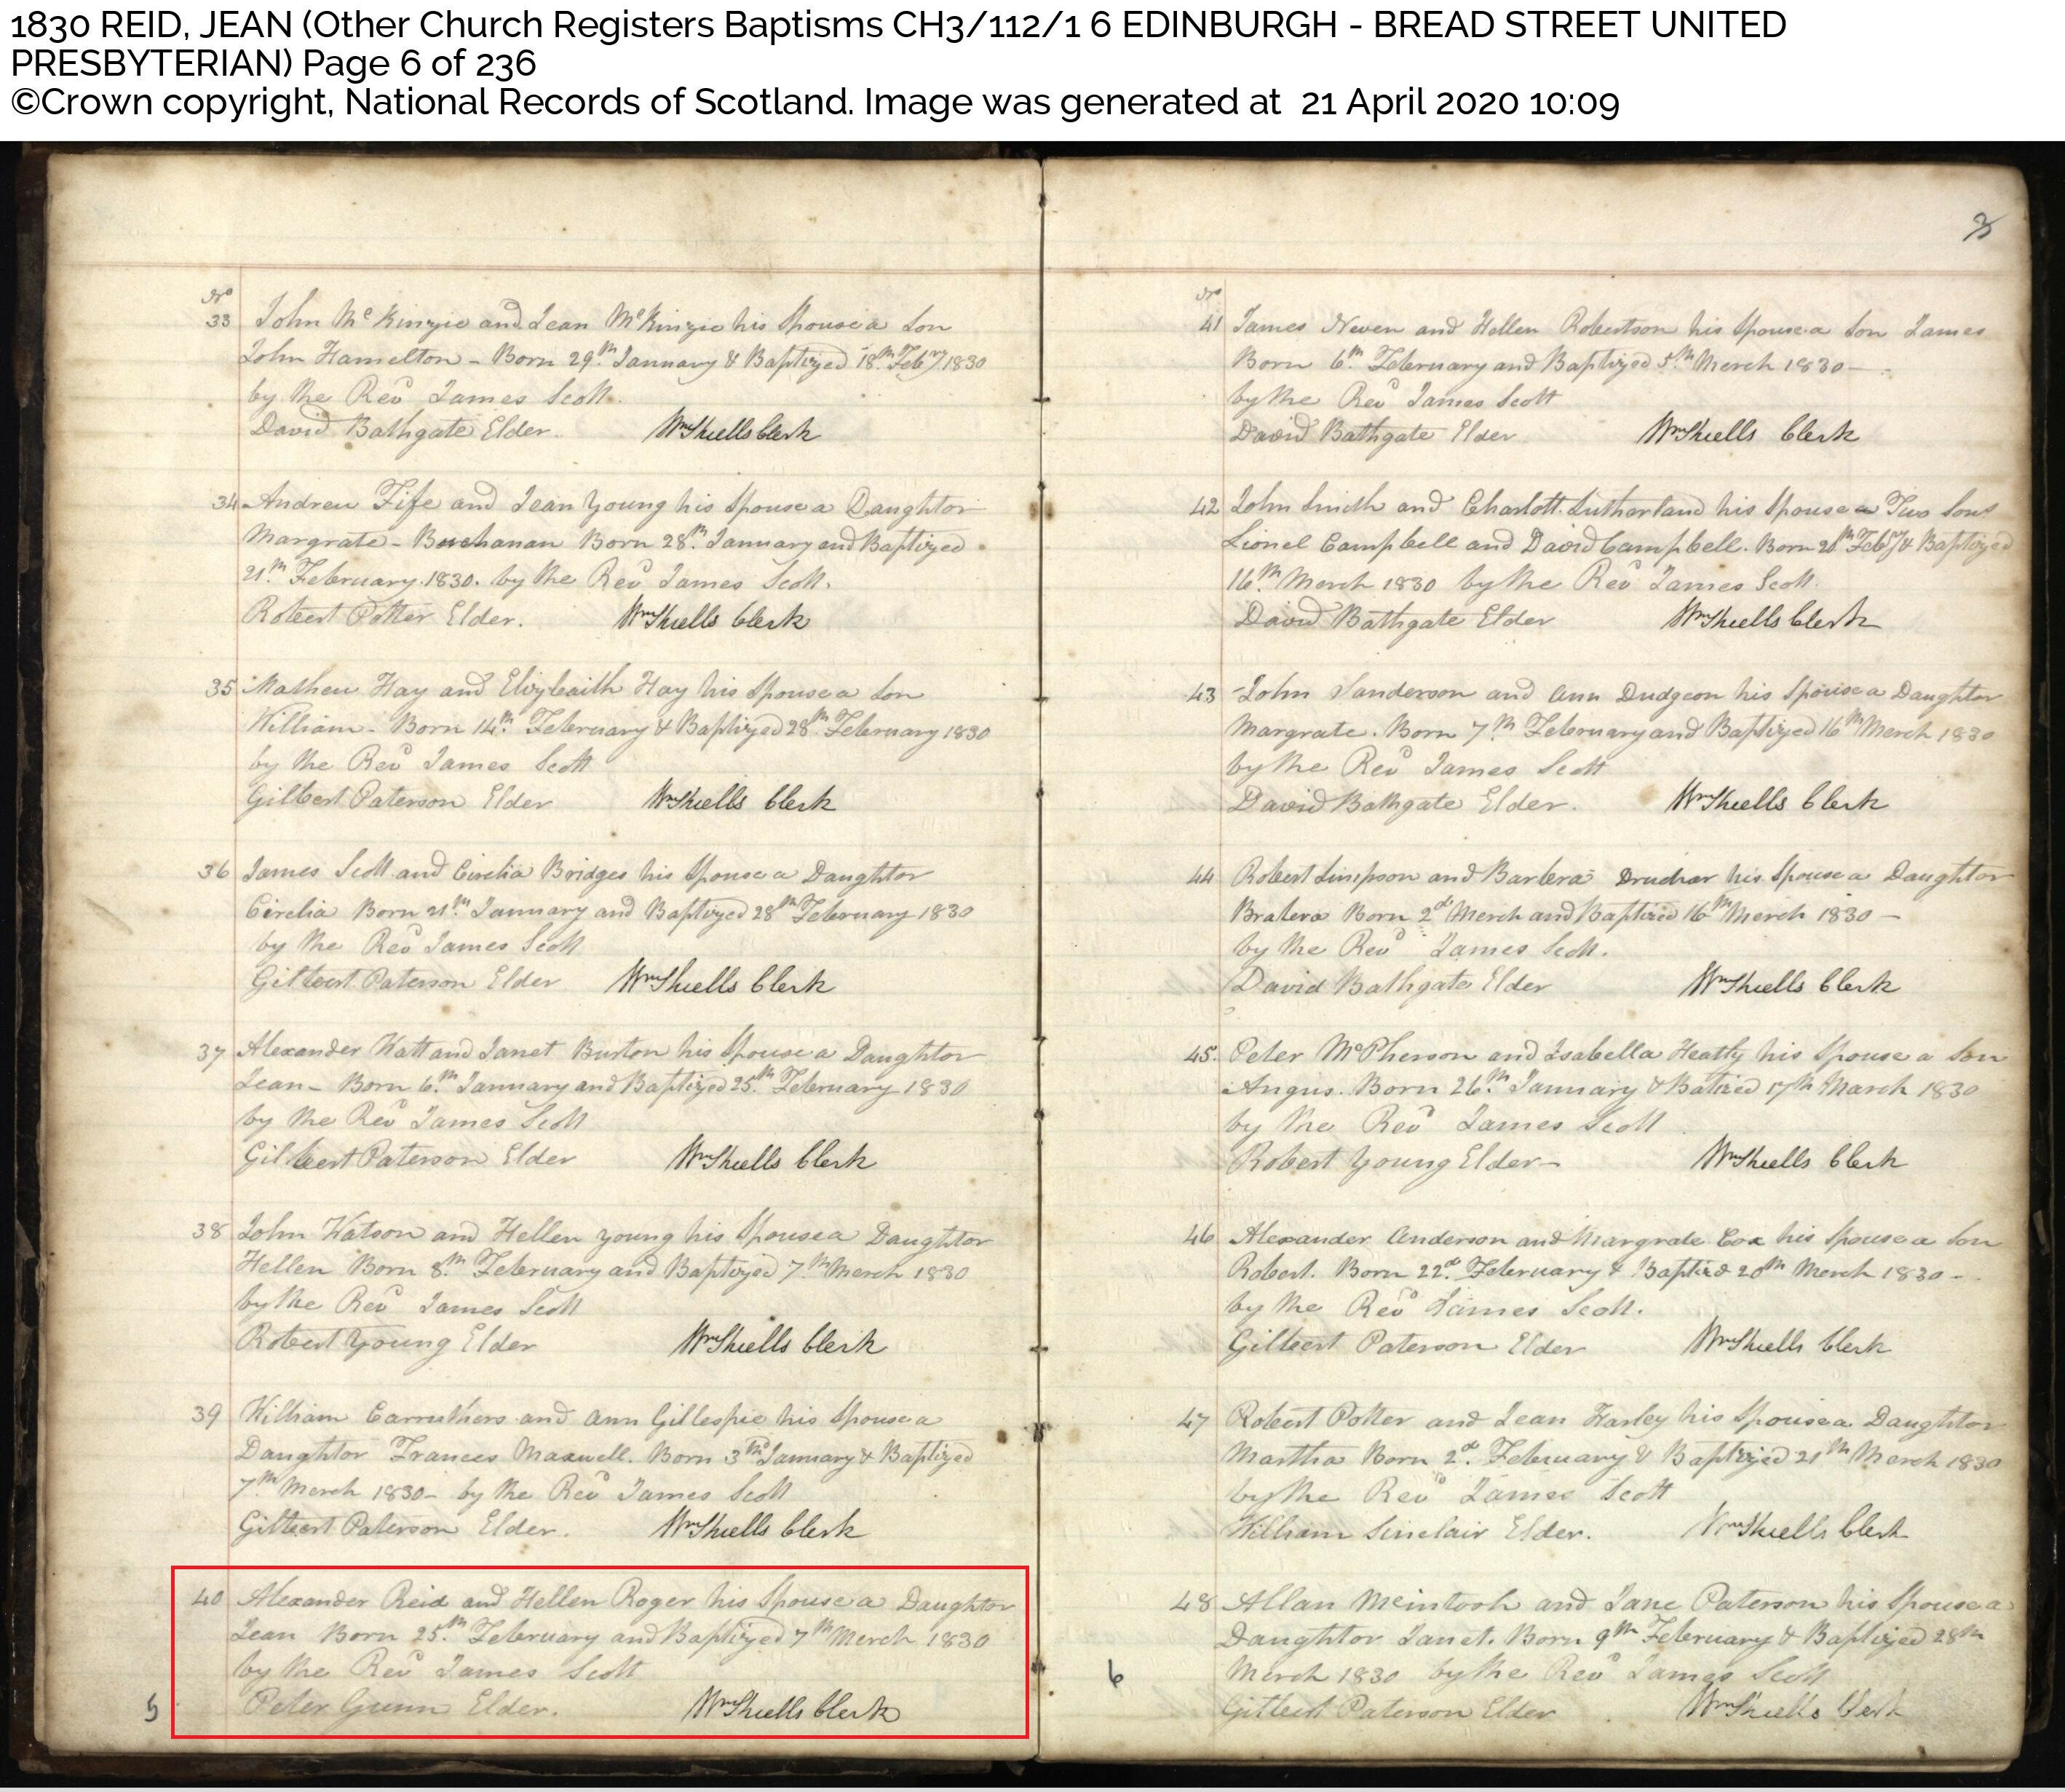 1830 REID, JEAN (Other Church Registers Baptisms CH3/112/1 6 EDINBURGH - BREAD STREET UNITED
PRESBYTERIAN) Page 6 of 236
©Crown copyright, National Records of Scotland. Image was generated at 21 April 2020 10:09
No
33 John McKinzie and Jean McKinzie his Spouse a Son
John Hamelton - Born 29th January & Baptized 18th Feby 1830
by the Revd James Scott.
David Bathgate Elder. Wm Shiells Clerk
34 Andrew Fife and Jean Young his Spouse a Daughter
Margrate - Buchanan Born 28th January and Baptized
21th February 1830. by the Revd James Scott.
Robert Potter Elder. Wm Shiells Clerk
35 Mathew Hay and Elizbaith Hay his Spouse a Son
William - Born 14th February & Baptized 28th February 1830
by the Revd James Scott
Gilbert Paterson Elder Wm Shiells Clerk
36 James Scott and Cirelia Bridges his Spouse a Daughter
Cirelia Born 21th January and Baptized 28th February 1830
by the Revd James Scott
Gilbert Paterson Elder Wm Shiells Clerk
37 Alexander Watt and Janet Burton his Spouse a Daughter
Jean - Born 6th January and Baptized 25th February 1830
by the Revd James Scott
Gilbert Paterson Elder Wm Shiells Clerk
38 John Watson and Hellen Young his Spouse a Daughter
Hellen Born 8th February and Baptized 7th March 1830
by the Revd James Scott
Robert Young Elder Wm Shiells Clerk
39 William Carruthers and Ann Gillespie his Spouse a
Daughter Frances Maxwell. Born 3th January & Baptized
7th March 1830 - by the Revd James Scott
Gilbert Paterson Elder. Wm Shiells Clerk
40 Alexander Reid and Hellen Roger his Spouse a Daughter
Jean Born 25th February and Baptized 7th March 1830
by the Revd James Scott
5 Peter Gunn Elder. Wm Shiells Clerk
3
No
41 James Neven and Hellen Robertson his Spouse a Son James
Born 6th February and Baptized 5th March 1830 -
by the Revd James Scott
David Bathgate Elder Wm Shiells Clerk
42 John Smith and Charlott Sutherland his Spouse a Two Sons
Lionel Campbell and David Campbell. Born Feby & Baptized
16th March 1830 by the Revd James Scott.
David Bathgate Elder Wm Shiells Clerk
43 John Sanderson and Ann Dudgeon his Spouse a Daughter
Margrate. Born 7th February and Baptized 16th March 1830
by the Revd James Scott
David Bathgate Elder. Wm Shiells Clerk
44 Robert Simpson and Barbera his Spouse a Daughter
Brabera Born 2d March and Baptized 16th March 1830 -
by the Revd James Scott.
David Bathgate Elder Wm Shiells Clerk
45. Peter McPherson and Isabella Heatly his Spouse a Son
Angus. Born 26th January & Batized 17th March 1830
by the Revd James Scott
Robert Young Elder - Wm Shiells Clerk
46 Alexander Anderson and Margrate Cox his Spouse a Son
Robert. Born 22d February & Baptized 20th March 1830 -
by the Revd James Scott.
Gilbert Paterson Elder Wm Shiells Clerk
47 Robert Potter and Jean Harley his Spouse a Daughter
Martha Born 2d February & Baptized 21th March 1830
by the Revd James Scott
William Sinclair Elder. Wm Shiells Clerk
48 Allan McIntosh and Jane Paterson his Spouse a
Daughter Janet. Born 9th February & Baptized 28th
6 March 1830 by the Revd James Scott
Gilbert Paterson Elder Wm Shiells Clerk